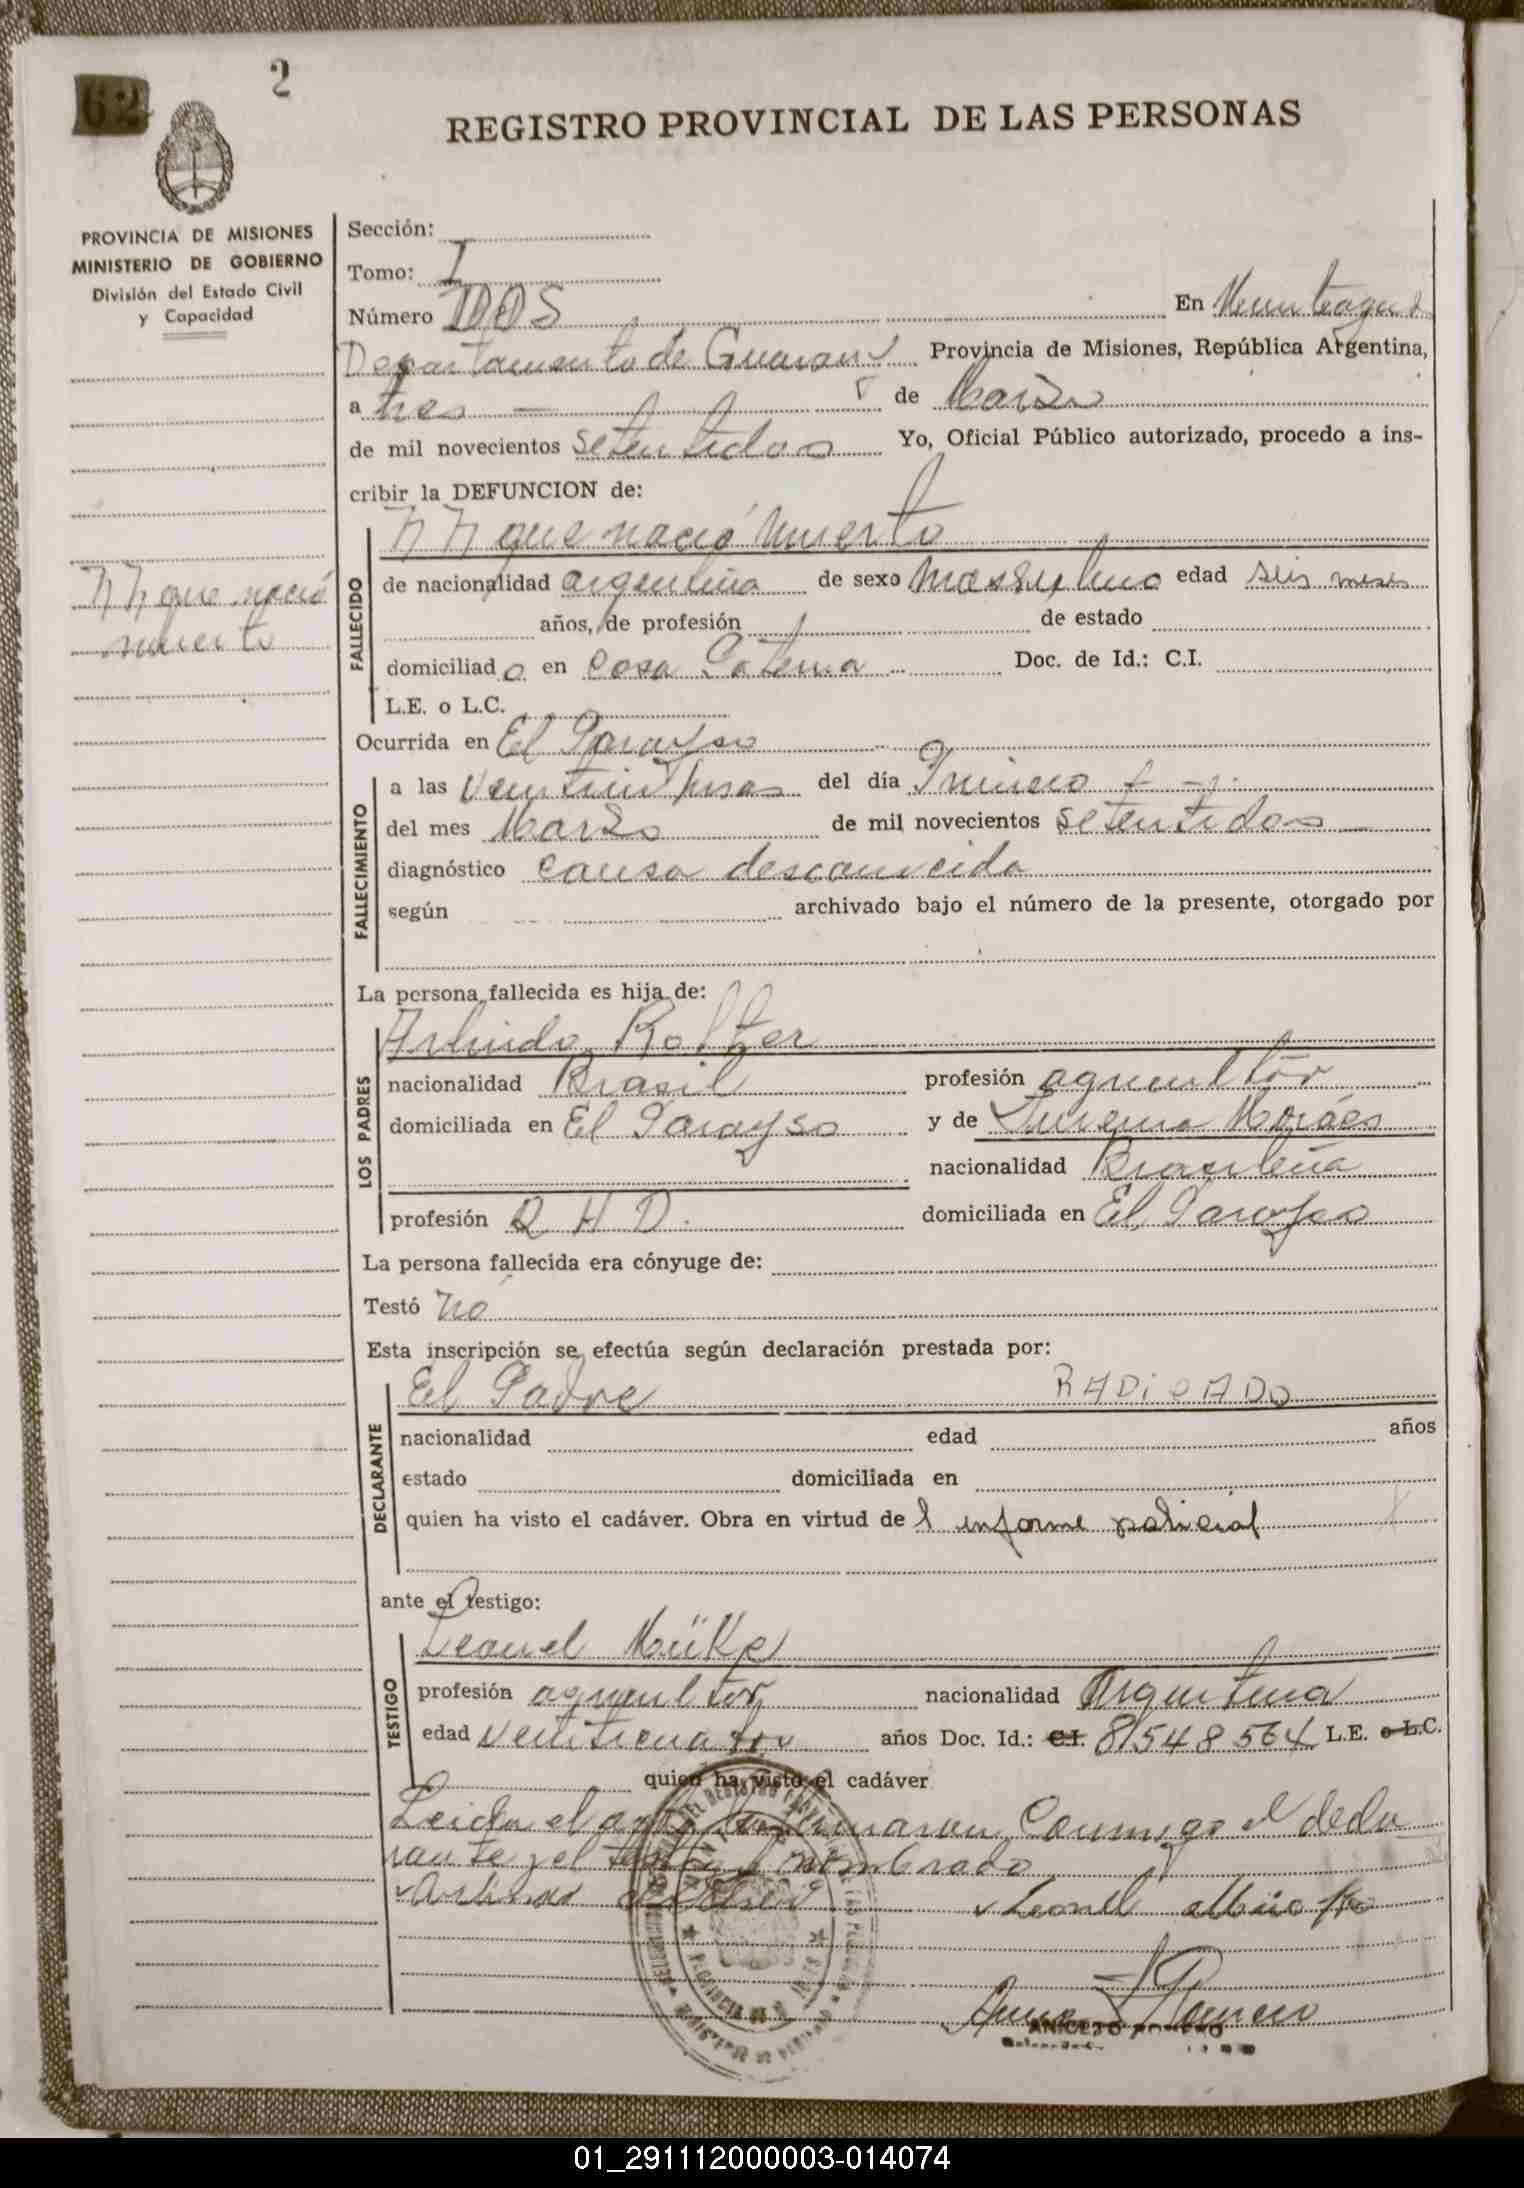 62
2
REGISTRO PROVINCIAL DE LAS PERSONAS
PROVINCIA DE MISIONES
MINISTERIO DE GOBIERNO
División del Estado Civil
y Capacidad
Sección:
Tomo: I
Número DOS En
Departamento de Guarani Provincia de Misiones, República Argentina,
a tres de Marzo
de mil novecientos setentidos Yo, Oficial Público autorizado, procedo a ins-
cribir la DEFUNCION de:
NN que nació muerto
NN que nació
muerto
FALLECIDO
de nacionalidad argentina de sexo masculino edad seis meses
años, de profesión de estado
domiciliado en Casa Paterna Doc. de Id.: C.I.
L.E. o L.C.
Ocurrida en El Parayso
FALLECIMIENTO
a las horas del día Primero
del mes Marzo de mil novecientos setentidos
diagnóstico causa desconocida
según archivado bajo el número de la presente, otorgado por
La persona fallecida es hija de:
LOS PADRES
Arlindo
nacionalidad Brasil profesión agricultor
domiciliada en El Parayso y de Moráes
nacionalidad Brasileña
profesión Q. H. D. domiciliada en El Parayso
La persona fallecida era cónyuge de:
Testó no
Esta inscripción se efectúa según declaración prestada por:
DECLARANTE
El Padre RADICADO
nacionalidad edad años
estado domiciliada en
quien ha visto el cadáver. Obra en virtud del informe policial
ante el testigo:
TESTIGO
Leonel Müke
profesión agricultor nacionalidad Argentina
edad venticuatro años Doc. Id.: C.I. 8.548.564 L.E. o L.C.
quien ha visto el cadáver
Leida el acta la firmaron conmigo el decla
rante y el testigo nombrado
Leonel
ANICETO ROMERO
01_291112000003-014074